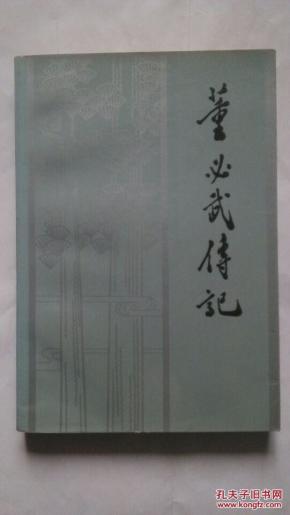 董必武傳記
孔夫子旧书网
www.kongfz.com